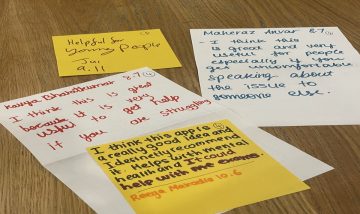 Helpful for
young people
Jui
9.11
Maheraz Anvar 8.7
- I think this
is great and very
useful for people
especially if you
get uncomfortable
speaking about
the issue to
someone else.
8.7
I think this is great
because
useful to get help
if you are struggling
I think this app is
a really good idea and
I definetly recommend
it. Helps with mental
health and It could
help with me exams.
Reeya Marodia 10.6